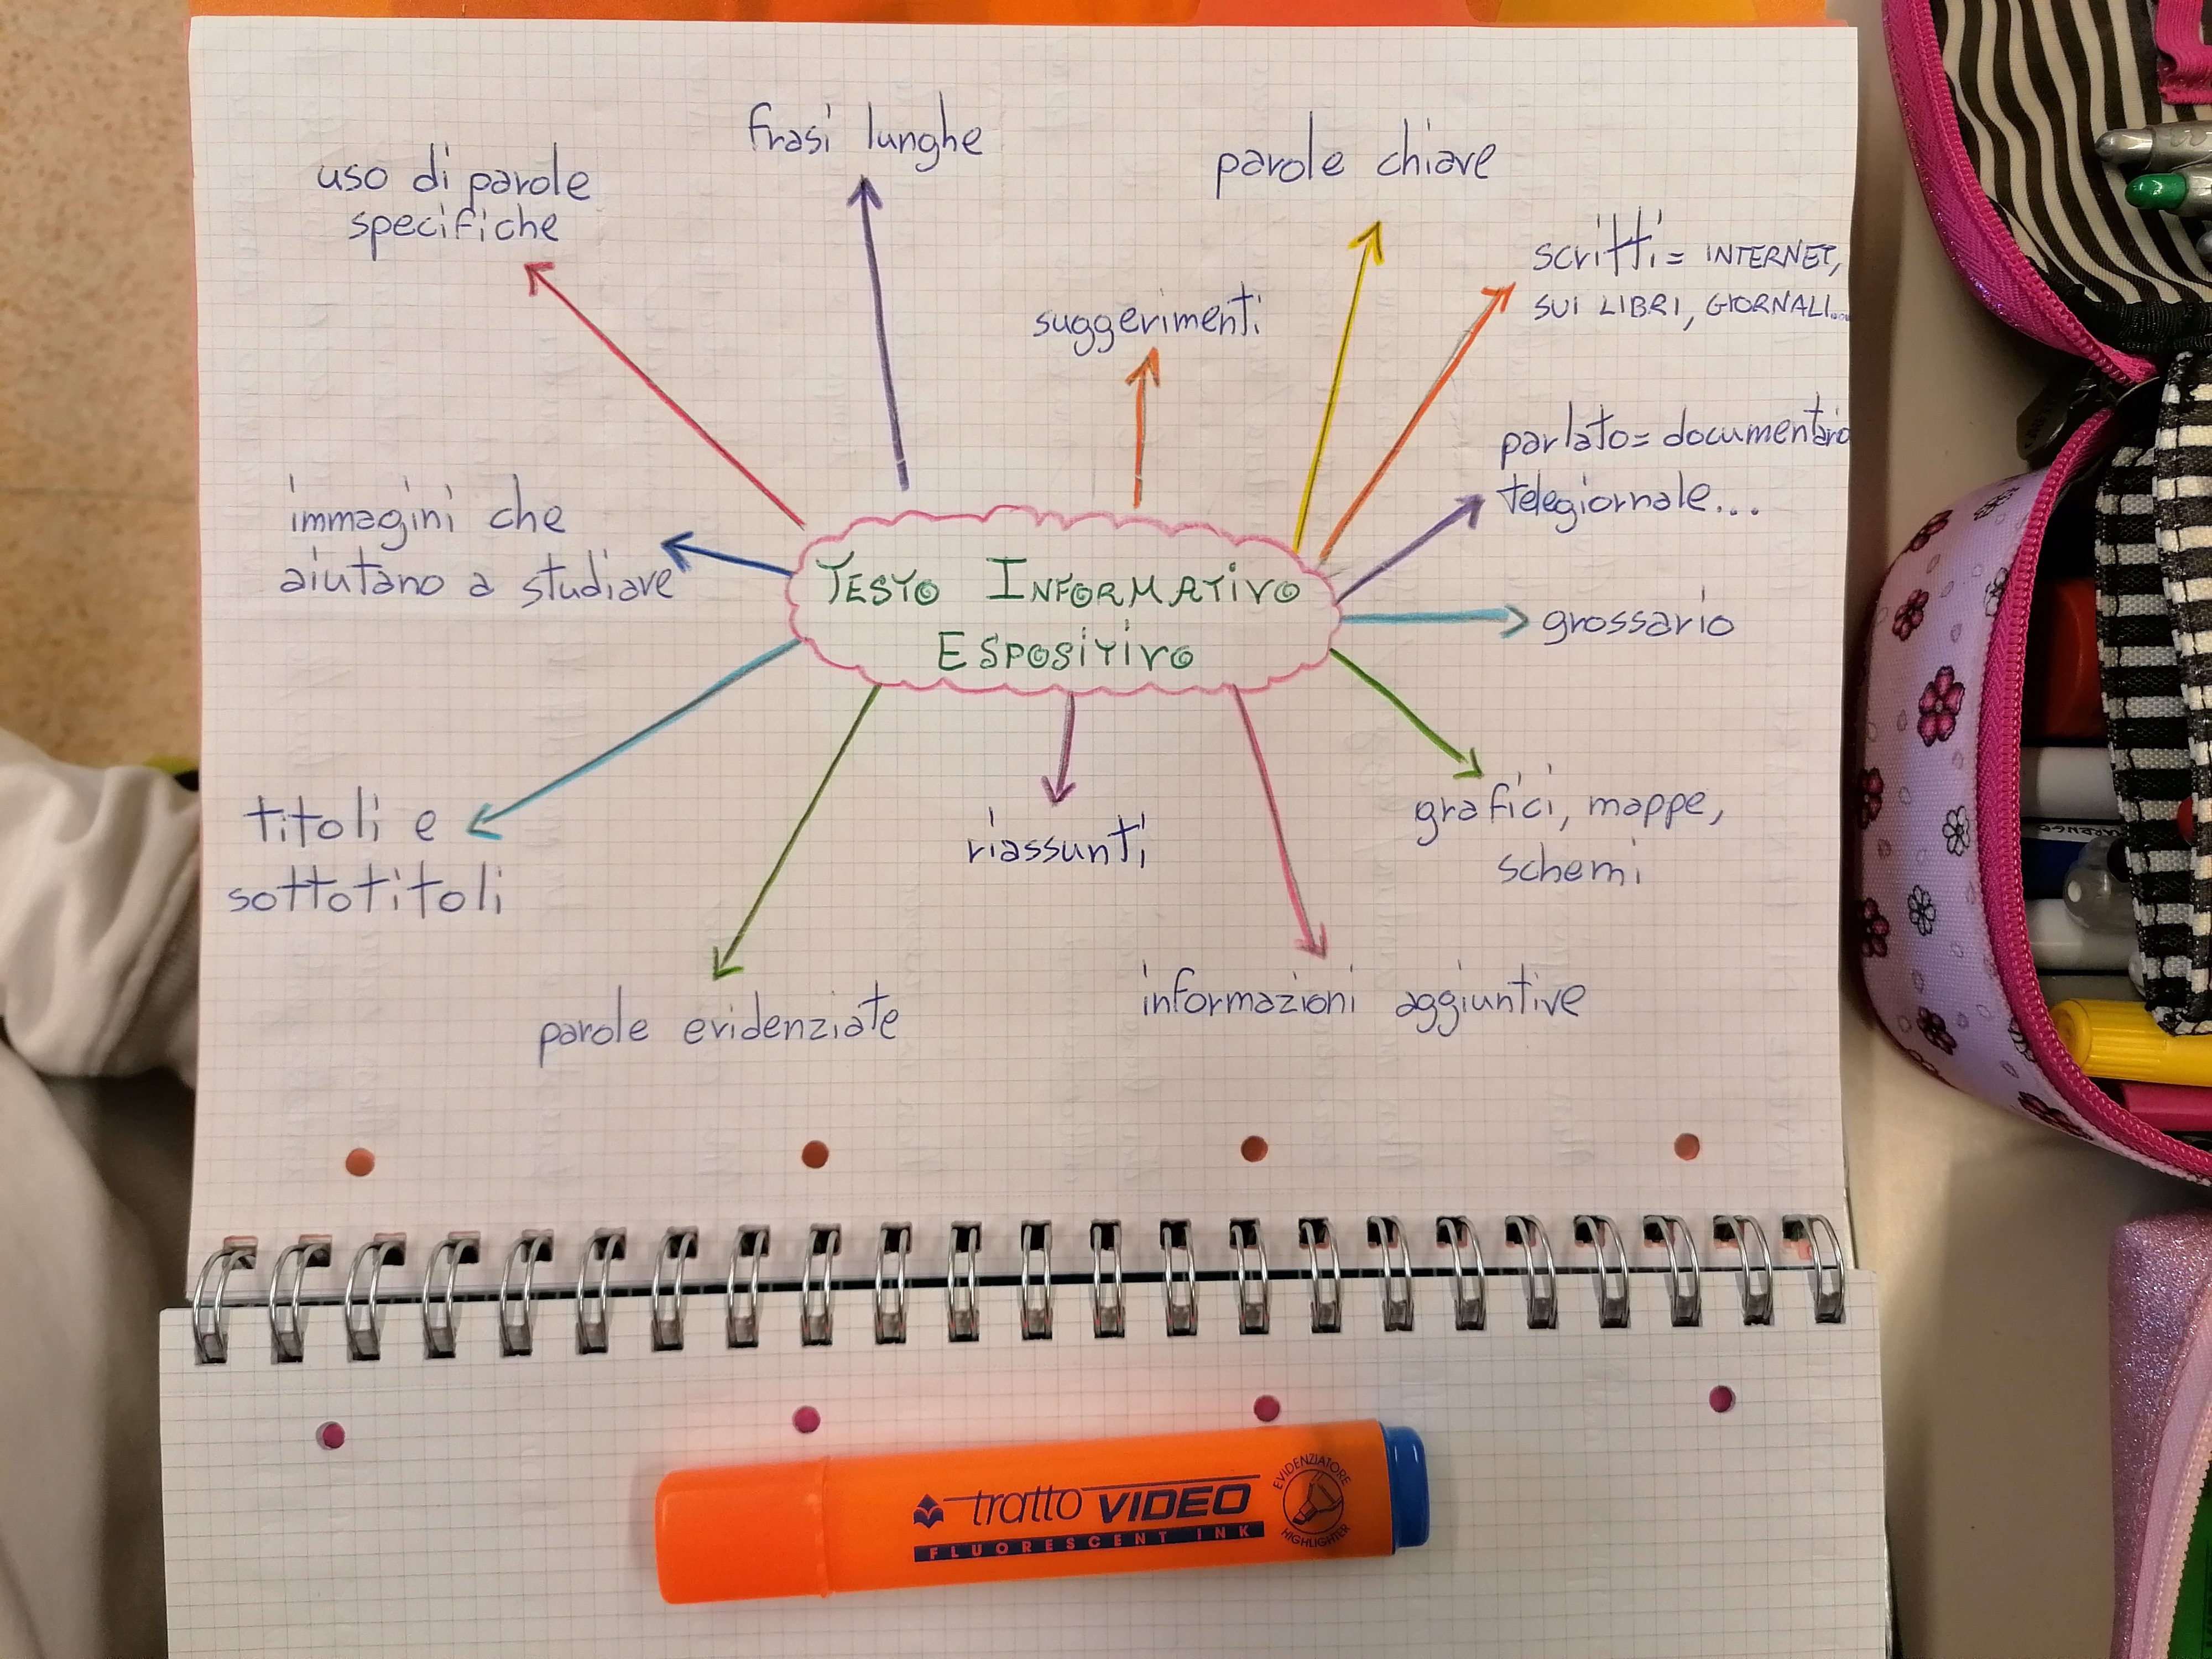 frasi lunghe
parole chiave
uso di parole
specifiche
scritti= INTERNET,
SUI LIBRI, GIORNALI...
suggerimenti
parlato= documentario
telegiornale...
immagini che
aiutano a studiare
TESTO INFORMATIVO
ESPOSITIVO
grossario
titoli e
sottotitoli
riassunti
grafici, mappe,
schemi
parole evidenziate
informazioni aggiuntive
tratto VIDEO
FLUORESCENT INK
EVIDENZIATORE
HIGHLIGHTER